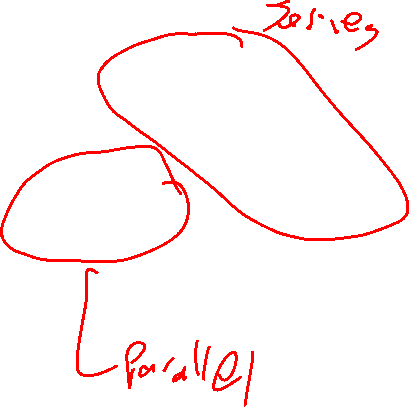 Series
Parallel